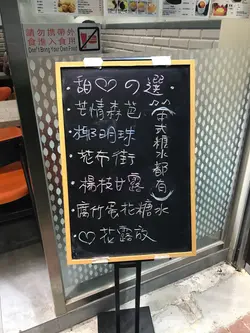 請勿攜帶外
食進入食用
Don't Bring Your Own Food
甜♡の選
·芒情森芭
·椰明珠
·花布街
·楊枝甘露
·腐竹蛋花糖水
·♡花露放
(中式糖水都有)